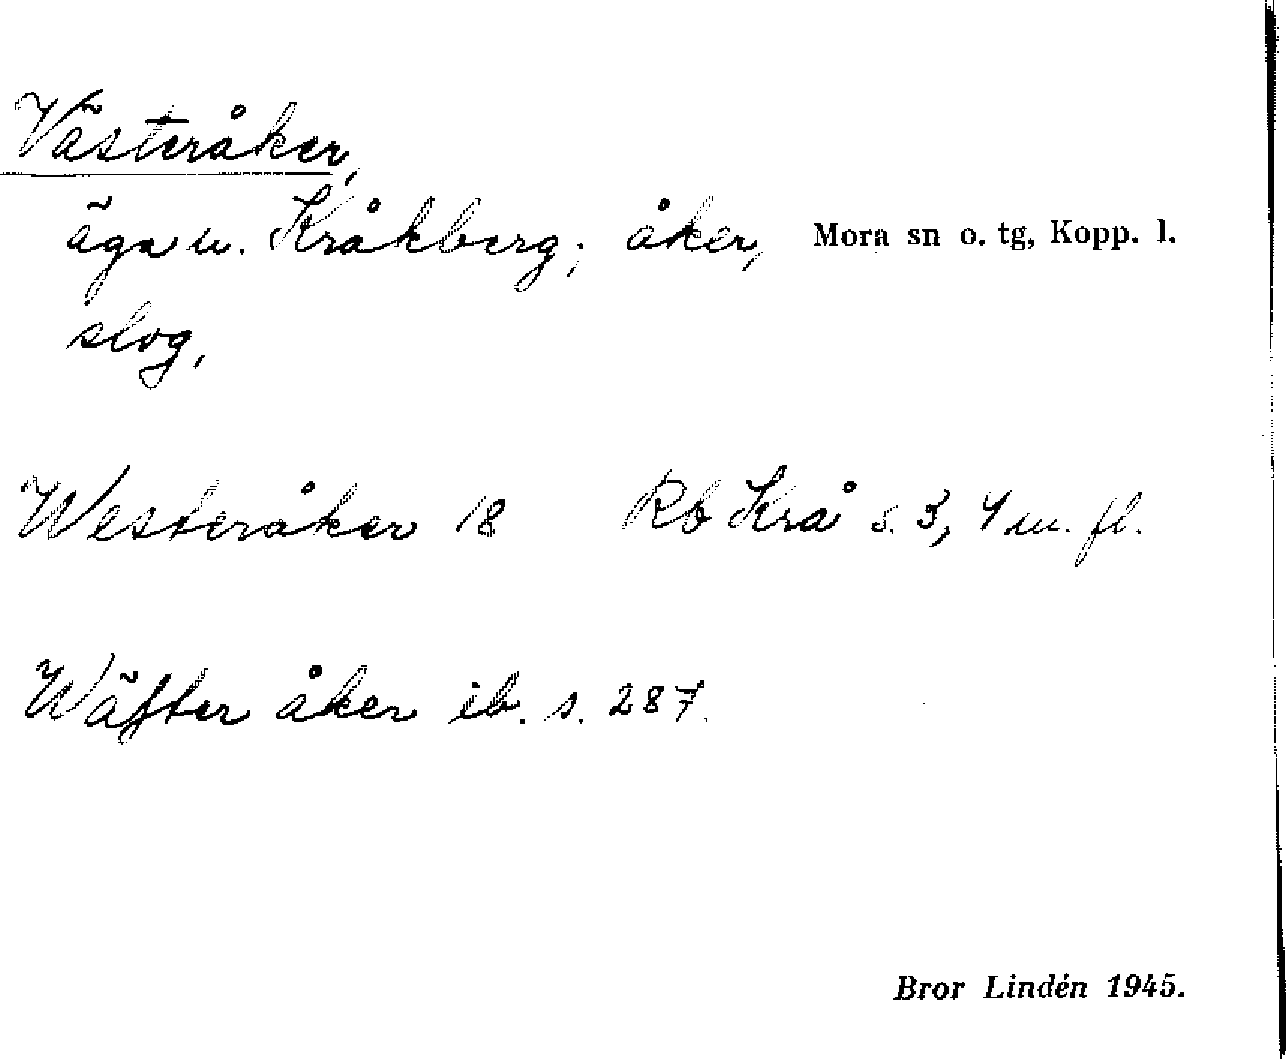 Västeråker,
äga u. Kråkberg; åker, Mora sn o. tg, Kopp. l.
slog,
Westeråker 18 Rb Krå s. 3, 4 m. fl.
Wäſter åker ib. s. 287.
Bror Lindén 1945.